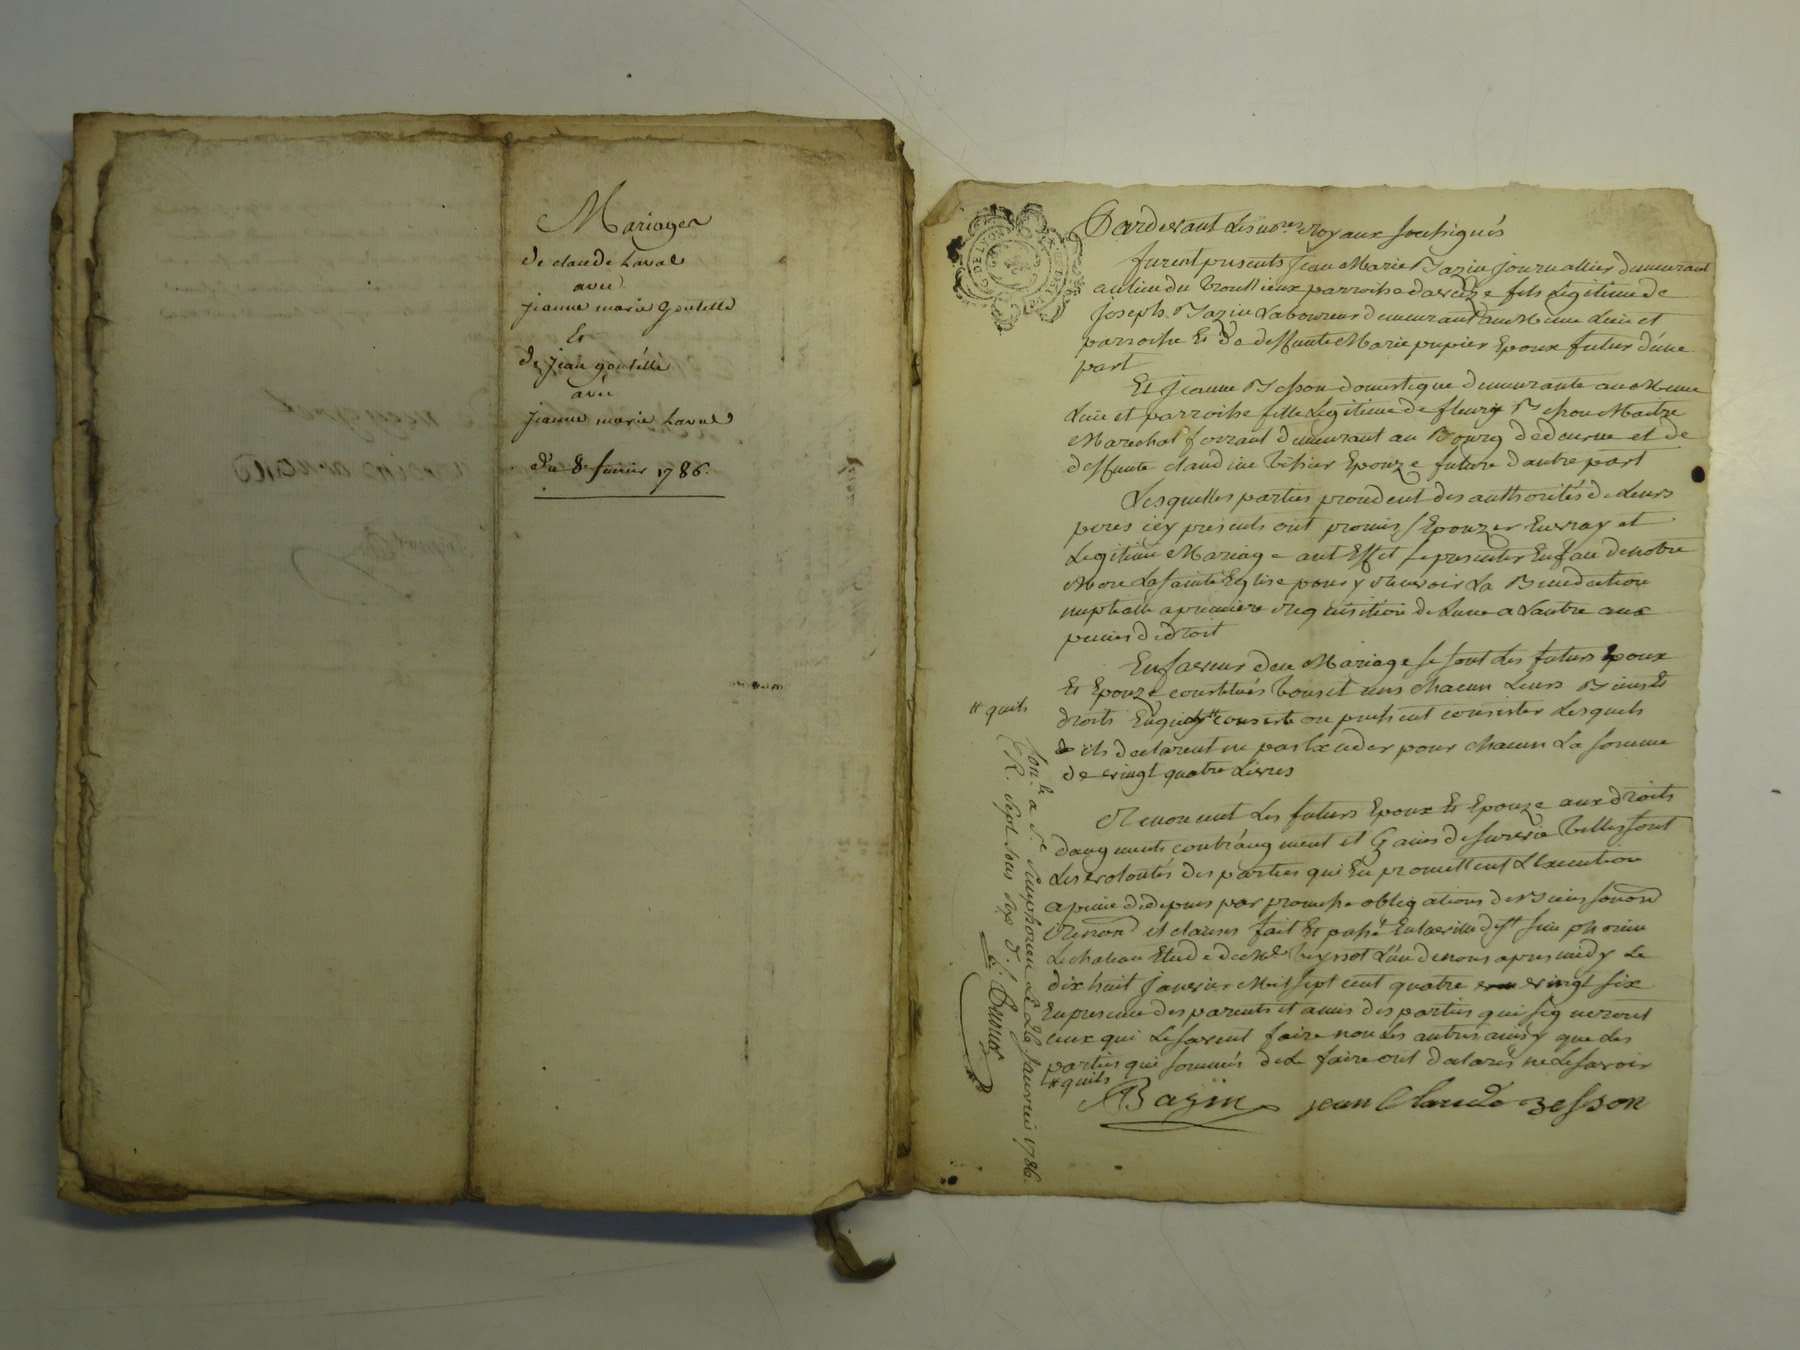 Mariages
de claude Laval
avec
jeanne marie goutelle
Et
de jean goutelle
avec
jeanne marie Laval
du 8e fevrier 1786.
Pardevant Les nores Royaux soussignés
furent presents Jean Marie Bazin journallier demeurant
au lieu du parroisse daveize fils Legitime de
joseph Bazin Laboureur demeurant au Meme Lieu et
parroisse Et de deffunte Marie pupier Epoux futur d'une
part
Et Jeanne Besson domestique demeurante au Meme
Lieu et parroisse fille Legitime de fleury Besson Maitre
Marechal ferrant demeurant au Bourg de et de
deffunte claudine Epouze future d'autre part
Lesquelles parties procedent des authorités de Leurs
peres icy presents ont promis s'Epouzer En vray et
Legitime Mariage aut Effet se presenter En face de notre
Mere La sainte Eglise pour y Recevoir La Benediction
nuptialle a premiere Requisition de Lune a Lautre aux
peines de droit
En faveur du Mariage se sont Les futurs Epoux
Et Epouze constitués tous et uns chacun Leurs Biens Et
droits En quoy # consiste ou puissent consister Lesquels
ils declarent ne pas Exceder pour chacun La somme
de vingt quatre Livres
# quils
Renoncent Les futurs Epoux Et Epouze aux droits
daugments contr'augment et Gains de survie telles sont
Les volontés des parties qui En promettent L'Execution
a peine de depens par promesse obligations de Biens soumon
Renonon et clauses fait Et passé En la ville de st simphorien
Le chateau Etude de Me L'un de nous apres midy Le
dix huit Janvier Mil sept cent quatre vingt six
En presence des parents et amis des parties qui signeront
ceux qui Le savent faire non Les autres ainsy que Les
parties qui sommés de Le faire ont declarés ne Le savoir
# quils
Bazin jean Claude Besson
Con.lé a St Simphorien Le janvier 1786.
R. sept sous six d.